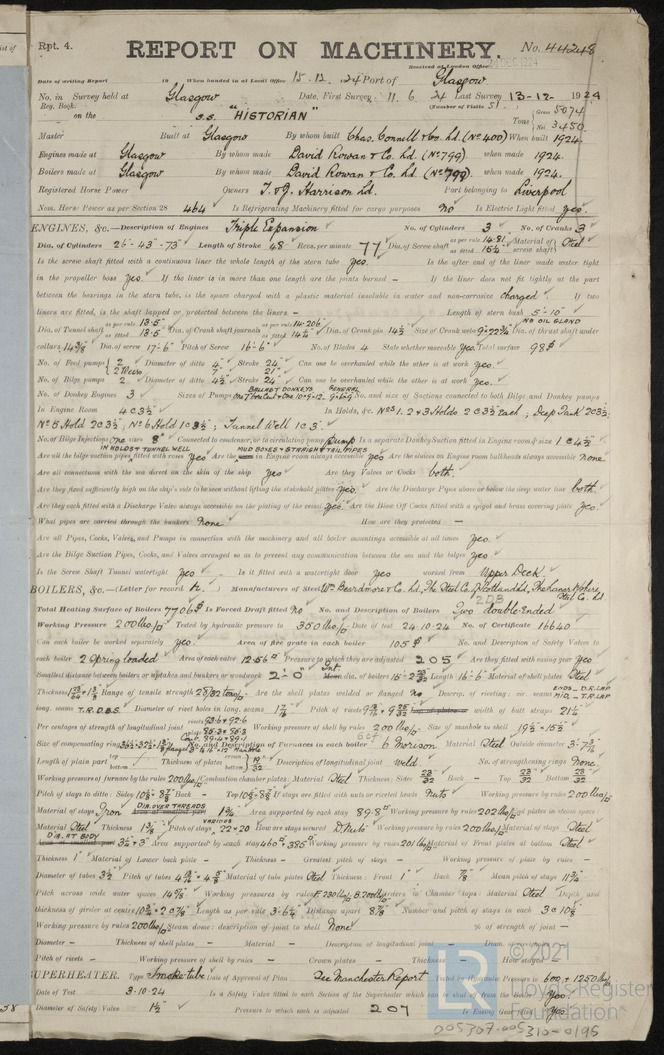 Rpt. 4.
REPORT ON MACHINERY.
No. 44248
Received at London Office
Date of writing Report 19 When handed in at Local Office 15.12.24 Port of Glasgow
No. in Survey held at Glasgow Date, First Survey 11.6.24 Last Survey 13-12-1924
Reg. Book. (Number of Visits 51)
on the S.S. "HISTORIAN" Tons Gross 5074 Net 3450
Master Built at Glasgow By whom built Chas. Connell & Co. Ld. (No 400) When built 1924
Engines made at Glasgow By whom made David Rowan & Co. Ld. (No 799) when made 1924.
Boilers made at Glasgow By whom made David Rowan & Co. Ld. (No 799) when made 1924.
Registered Horse Power Owners T. & J. Harrison Ld. Port belonging to Liverpool
Nom. Horse Power as per Section 28 464 Is Refrigerating Machinery fitted for cargo purposes No Is Electric Light fitted yes
ENGINES, &c.—Description of Engines Triple Expansion No. of Cylinders 3 No. of Cranks 3
Dia. of Cylinders 26-43-73 Length of Stroke 48 Revs. per minute 77 Dia. of Screw shaft as per rule 14.81 Material of screw shaft Steel
Is the screw shaft fitted with a continuous liner the whole length of the stern tube yes. Is the after end of the liner made water tight
in the propeller boss yes. If the liner is in more than one length are the joints burned – If the liner does not fit tightly at the part
between the bearings in the stern tube, is the space charged with a plastic material insoluble in water and non-corrosive charged. If two
liners are fitted, is the shaft lapped or protected between the liners – Length of stern bush 5-10
NO OIL GLAND
Dia. of Tunnel shaft as per rule 13.5 as fitted 13.5 Dia. of Crank shaft journals as per rule 14.206 as fitted 14¼ Dia. of Crank pin 14½ Size of Crank webs Dia. of thrust shaft under
collars 14⅜ Dia. of screw 17-6 Pitch of Screw 16-6 No. of Blades 4 State whether moveable yes Total surface 98
No. of Feed pumps 2 Diameter of ditto 4 Stroke 24 Can one be overhauled while the other is at work yes.
2 Weirs 7 21
No. of Bilge pumps 2 Diameter of ditto 4½ Stroke 24 Can one be overhauled while the other is at work yes.
BALLAST DONKEYS GENERAL
No. of Donkey Engines 3 Sizes of Pumps No. and size of Suctions connected to both Bilge and Donkey pumps
In Engine Room 4 C 3½ In Holds, &c. Nos 1. 2 & 3 Holds 2 C 3½ Each; Deep Tank 2C3½:
No 5 Hold 2 C 3½; No 6 Hold 1C3½; Tunnel Well 1C3.
No. of Bilge Injections One sizes 8 Connected to condenser, or to circulating pump Pump Is a separate Donkey Suction fitted in Engine room & size 1 C 4½
IN HOLDS & TUNNEL WELL MUD BOXES & STRAIGHT TAIL PIPES
Are all the bilge suction pipes fitted with roses yes Are the in Engine room always accessible yes Are the sluices on Engine room bulkheads always accessible none
Are all connections with the sea direct on the skin of the ship yes Are they Valves or Cocks both.
Are they fixed sufficiently high on the ship's side to be seen without lifting the stokehold plates yes. Are the Discharge Pipes above or below the deep water line both
Are they each fitted with a Discharge Valve always accessible on the plating of the vessel yes. Are the Blow Off Cocks fitted with a spigot and brass covering plate yes.
What pipes are carried through the bunkers None How are they protected –
Are all Pipes, Cocks, Valves, and Pumps in connection with the machinery and all boiler mountings accessible at all times yes.
Are the Bilge Suction Pipes, Cocks, and Valves arranged so as to prevent any communication between the sea and the bilges yes
Is the Screw Shaft Tunnel watertight yes Is it fitted with a watertight door yes worked from Upper Deck.
BOILERS, &c.—(Letter for record A.) Manufacturers of Steel Wm Beardmore & Co. Ld, The Steel Co. of Scotland Ld, The Lanarkshire
Steel Co. Ld.
Total Heating Surface of Boilers 7706 Is Forced Draft fitted No No. and Description of Boilers Two double-Ended
Working Pressure 200 lbs/□ Tested by hydraulic pressure to 350 lbs/□ Date of test 24-10-24 No. of Certificate 16640
Can each boiler be worked separately yes. Area of fire grate in each boiler 105 No. and Description of Safety Valves to
each boiler 2 Spring loaded Area of each valve 12.56 Pressure to which they are adjusted 205 Are they fitted with easing gear yes
Smallest distance between boilers or uptakes and bunkers or woodwork 2-0 Int. dia. of boilers Length 16-6 Material of shell plates Steel
Thickness Range of tensile strength Are the shell plates welded or flanged no Descrip. of riveting: cir. seams ENDS - D.R. LAP MID - T.R. LAP
long. seams T.R.D.B.S. Diameter of rivet holes in long. seams 1 7/16 Pitch of rivets width of butt straps 21¼
Per centages of strength of longitudinal joint rivets 93.6 & 92.6 plate Working pressure of shell by rules 200 lbs/□ Size of manhole in shell 19½ × 15½
Size of compensating ring No. and Description of Furnaces in each boiler 6 Morison Material Steel Outside diameter
Length of plain part top bottom Thickness of plates crown bottom 19/32 Description of longitudinal joint weld. No. of strengthening rings None.
Working pressure of furnace by the rules 200 lbs/□ Combustion chamber plates: Material Steel Thickness: Sides 23/32 Back – Top 23/32 Bottom 23/32
Pitch of stays to ditto: Sides Back – Top If stays are fitted with nuts or riveted heads Nuts Working pressure by rules 200 lbs/□
DIA. OVER THREADS
Material of stays Iron 1¾ Area supported by each stay 89.8 Working pressure by rules 202 lbs/□ End plates in steam space:
Material Steel Thickness Pitch of stays VARIOUS 22 × 20 How are stays secured D. Nuts Working pressure by rules 200 lbs/□ Material of stays Steel
DIA. AT BODY
Area supported by each stay 460 & 385 Working pressure by rules 201 lbs/□ Material of Front plates at bottom Steel
Thickness 1 Material of Lower back plate – Thickness – Greatest pitch of stays – Working pressure of plate by rules –
Diameter of tubes 3½ Pitch of tubes Material of tube plates Steel Thickness: Front 1 Back ⅞ Mean pitch of stays
Pitch across wide water spaces 14⅝ Working pressures by rules F. 230 lbs/□ B. 200 lbs/□ Girders to Chamber tops: Material Steel Depth and
thickness of girder at centre Length as per rule 3-6¼ Distance apart 8⅞ Number and pitch of stays in each
Working pressure by rules 200 lbs/□ Steam dome: description of joint to shell None % of strength of joint –
Diameter – Thickness of shell plates – Material – Description of longitudinal joint – Diam. of
Pitch of rivets – Working pressure of shell by rules – Crown plates – Thickness – How stayed
SUPERHEATER. Type Smoke-tube Date of Approval of Plan See Manchester Report Tested by Hydraulic Pressure to 600, & 1250 lbs/□
Date of Test 3-10-24 Is a Safety Valve fitted to each Section of the Superheater which can be shut off from the Boiler yes.
Diameter of Safety Valve 1½ Pressure to which each is adjusted 207 Is Easing Gear fitted yes
© 2021
LR
Lloyd's Register
Foundation
005307-005310-0195